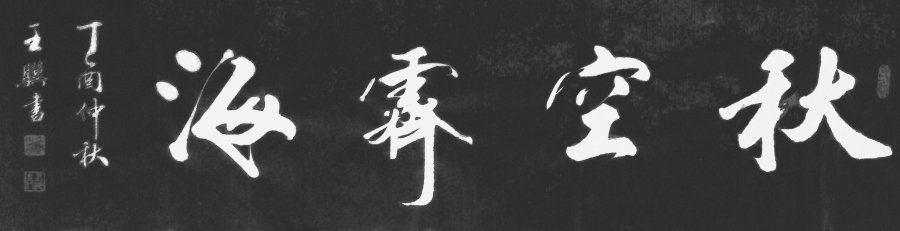 秋空霽海
丁酉仲秋
王騏書